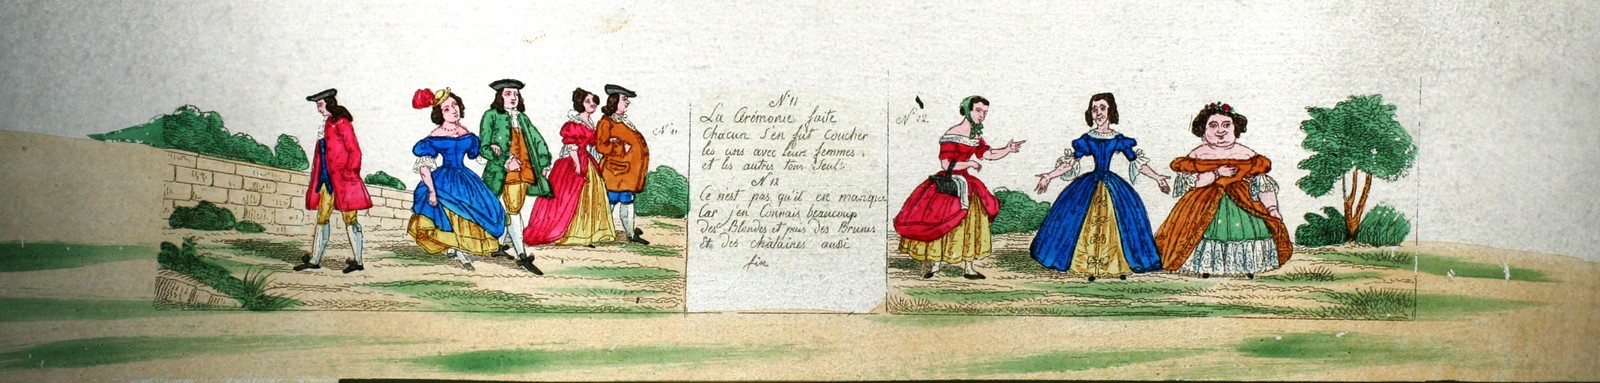 N° 11
N° 11
La Cérémonie faite
Chacun s'en fut coucher
les uns avec leurs femmes,
et les autres tous seul.
N 12
Ce n'est pas qu'il en manque
Car j'en connais beaucoup
des Blondes et puis des Brunes
et des châtaines aussi
fin
N° 12.